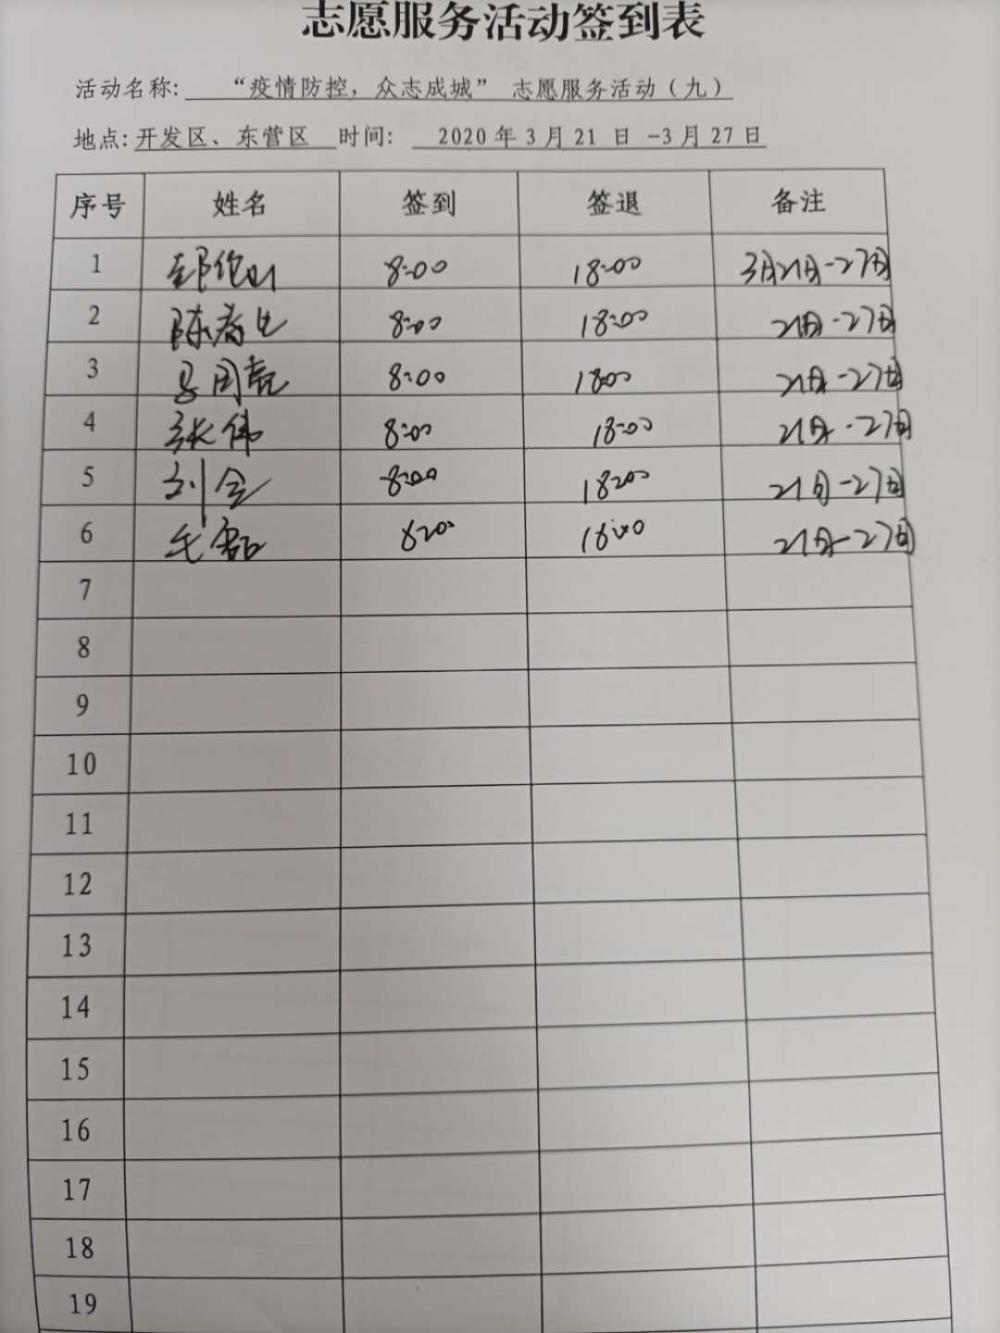 志愿服务活动签到表
活动名称: “疫情防控，众志成城” 志愿服务活动（九）
地点: 开发区、东营区 时间: 2020 年 3 月 21 日 -3 月 27 日
序号 姓名 签到 签退 备注
1 8:00 18:00 3月21日-27日
2 陈 8:00 18:00 21日-27日
3 8:00 18:00 21日-27日
4 张伟 8:00 18:00 21日-27日
5 刘 8:00 18:00 21日-27日
6 毛磊 8:00 18:00 21日-27日
7
8
9
10
11
12
13
14
15
16
17
18
19